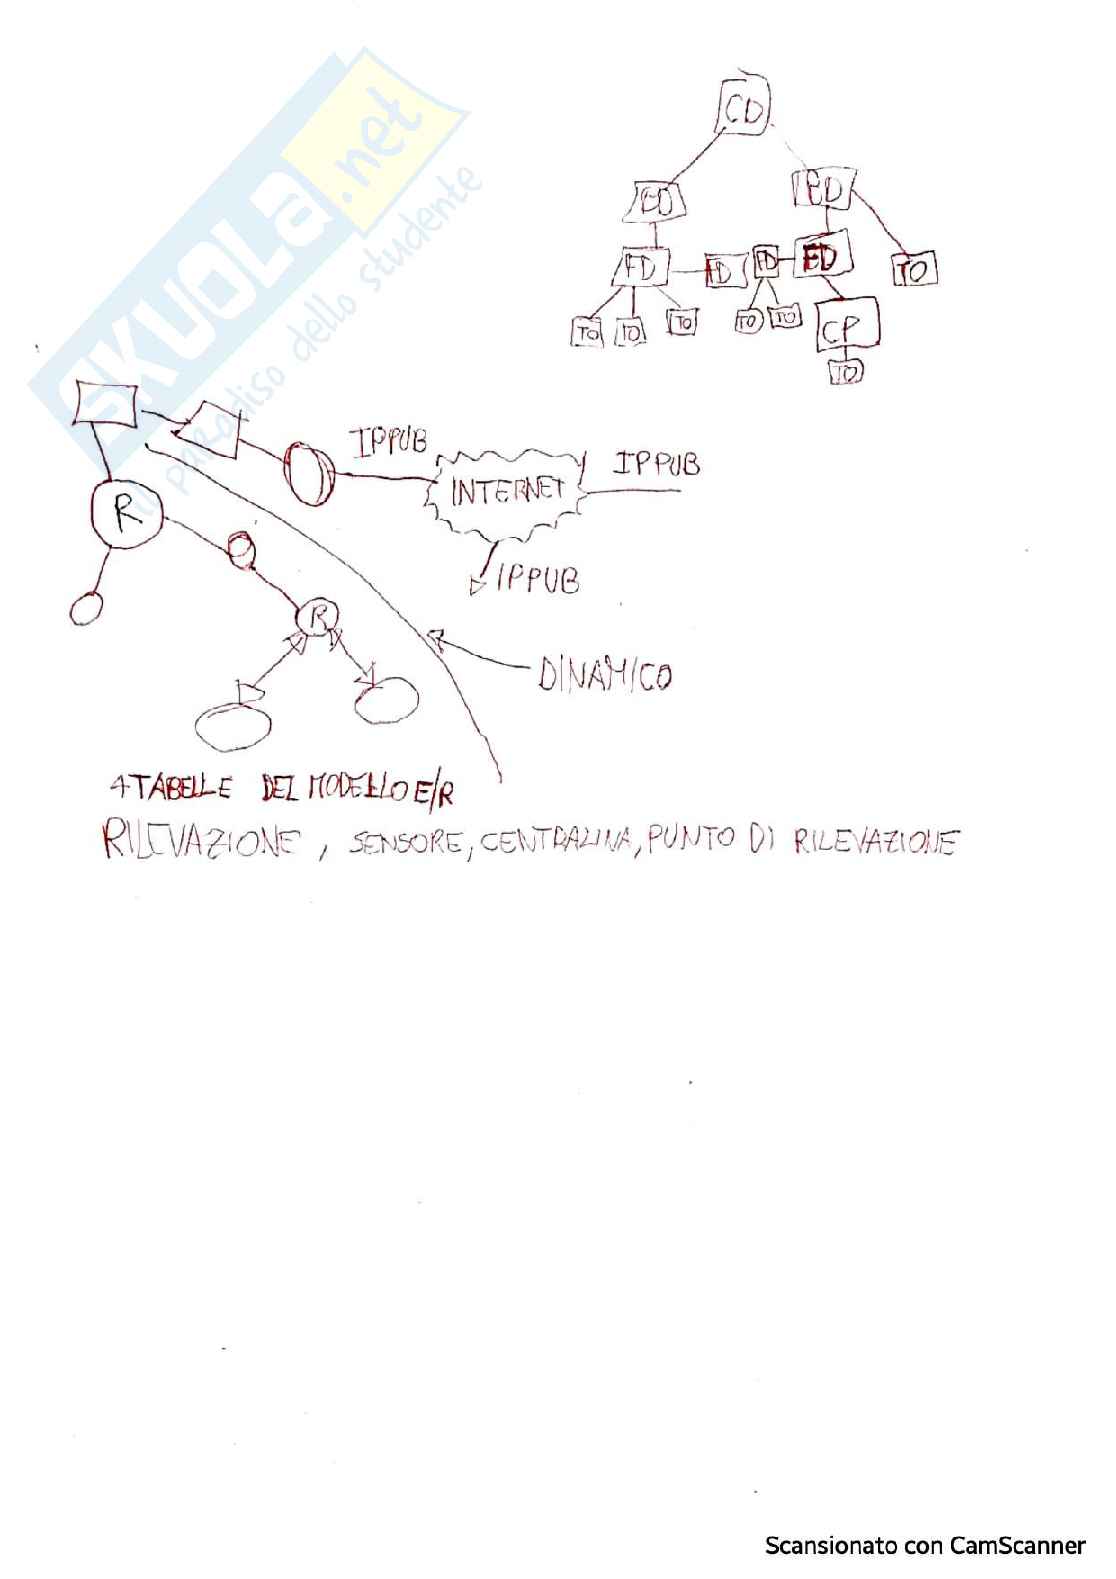 SKUOLA.net
il paradiso dello studente
CD
BD
FD
FD
FD
ED
TO
TO
TO
TO
TO
TO
CP
TO
IPPUB
INTERNET
IPPUB
R
IPPUB
R
DINAMICO
4 TABELLE DEL MODELLO E/R
RILEVAZIONE, SENSORE, CENTRALINA, PUNTO DI RILEVAZIONE
Scansionato con CamScanner